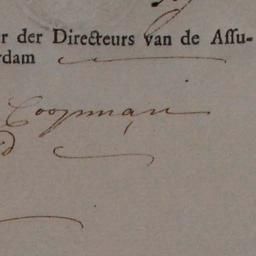 r der Directeurs van de Aſſu-
rdam
Coopman
id